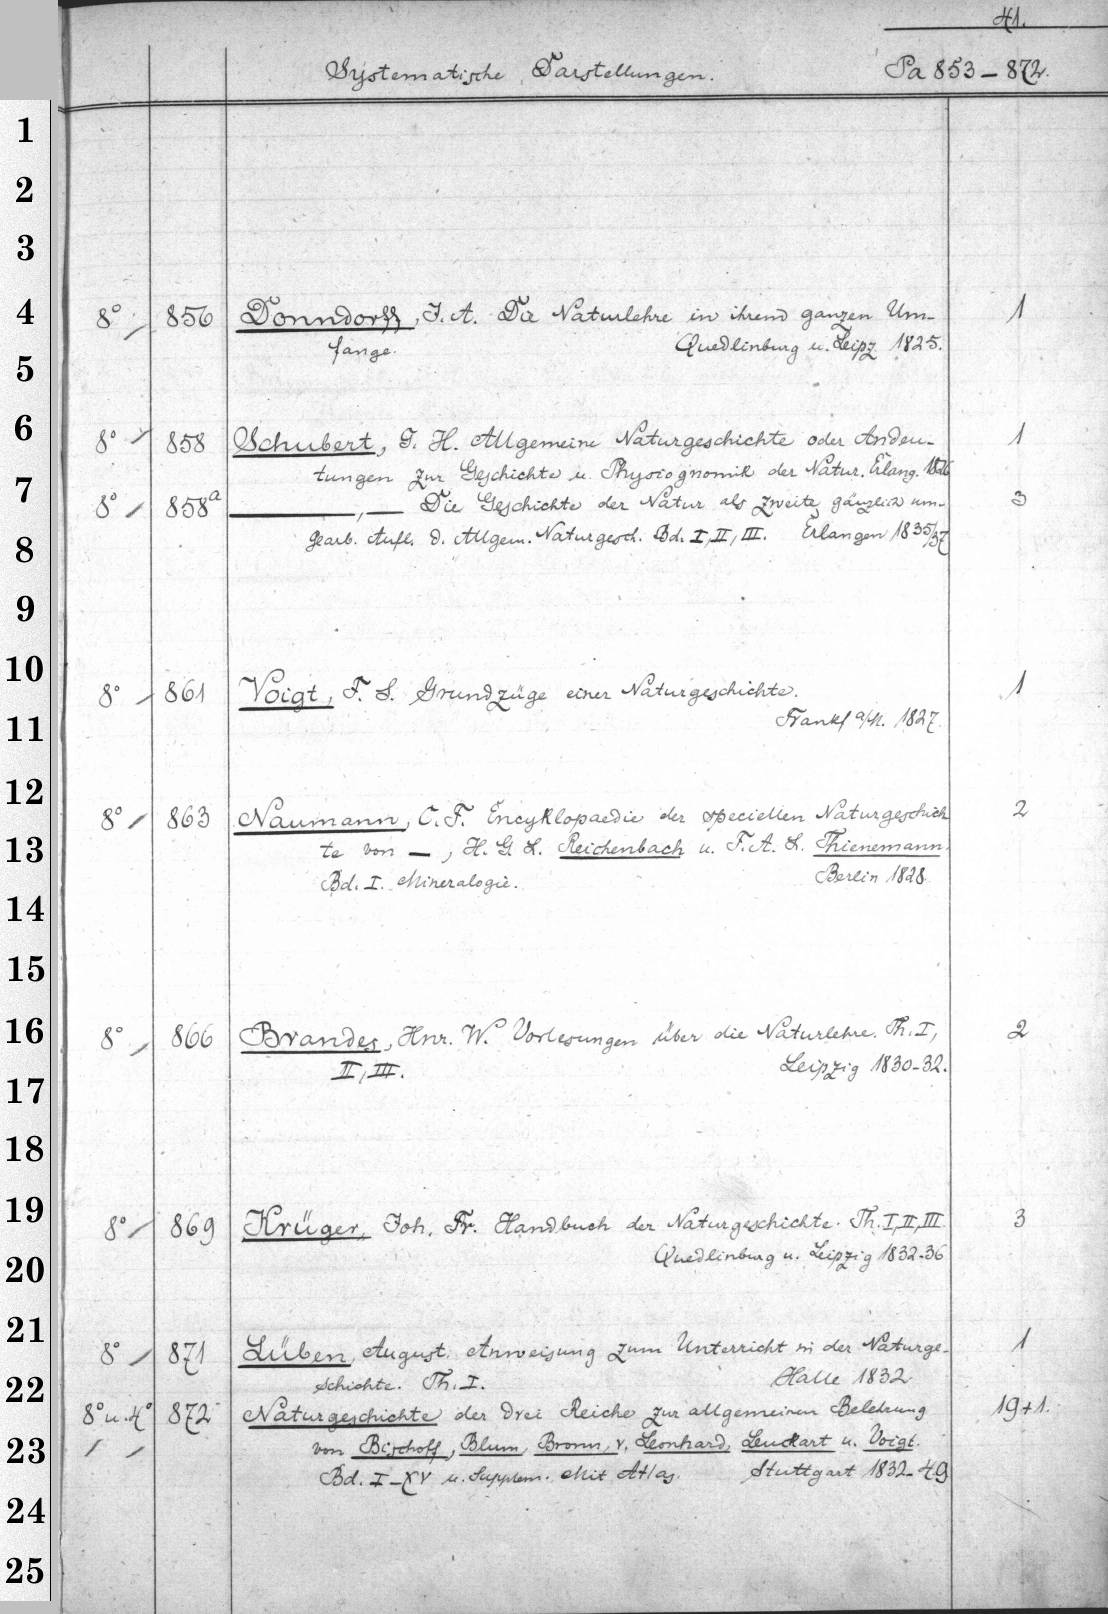 41.
Systematische Darstellungen. Pa 853 – 872.
1
2
3
4
8° 856 Donndorff, J. A. Die Naturlehre in ihrend ganzen Um- 1
fange. Quedlinburg u. Leipz 1825.
5
6
8° 858 Schubert, G. H. Allgemeine Naturgeschichte oder Andeu- 1
tungen zur Geschichte u. Physiognomik der Natur. Erlang. 1826
7
8° 858a ———, — Die Geschichte der Natur als zweite gänzlich um- 3
gearb. Aufl. d. Allgem. Naturgesch. Bd. I, II, III. Erlangen 1835/37
8
9
10
8° 861 Voigt, F. S. Grundzüge einer Naturgeschichte. 1
Frankf a/M. 1827.
11
12
8° 863 Naumann, C. F. Encyklopaedie der speciellen Naturgeschich 2
te von —, H. G. L. Reichenbach u. F. A. L. Thienemann.
13
Bd. I. Mineralogie. Berlin 1828.
14
15
16
8° 866 Brandes, Hnr. W. Vorlesungen über die Naturlehre. Th. I, 2
II, III. Leipzig 1830-32.
17
18
19
8° 869 Krüger, Joh. Fr. Handbuch der Naturgeschichte. Th. I, II, III 3
Quedlinburg u. Leipzig 1832-36
20
21
8° 871 Lüben, August. Anweisung zum Unterricht in der Naturge- 1
schichte. Th. I. Halle 1832
22
8° u. 4° 872 Naturgeschichte der drei Reiche zur allgemeinen Belehrung 19+1.
von Bischoff, Blum, Bronn, v. Leonhard, Leuckart u. Voigt.
23
Bd. I–XV u. Supplem. Mit Atlas. Stuttgart 1832-49
24
25